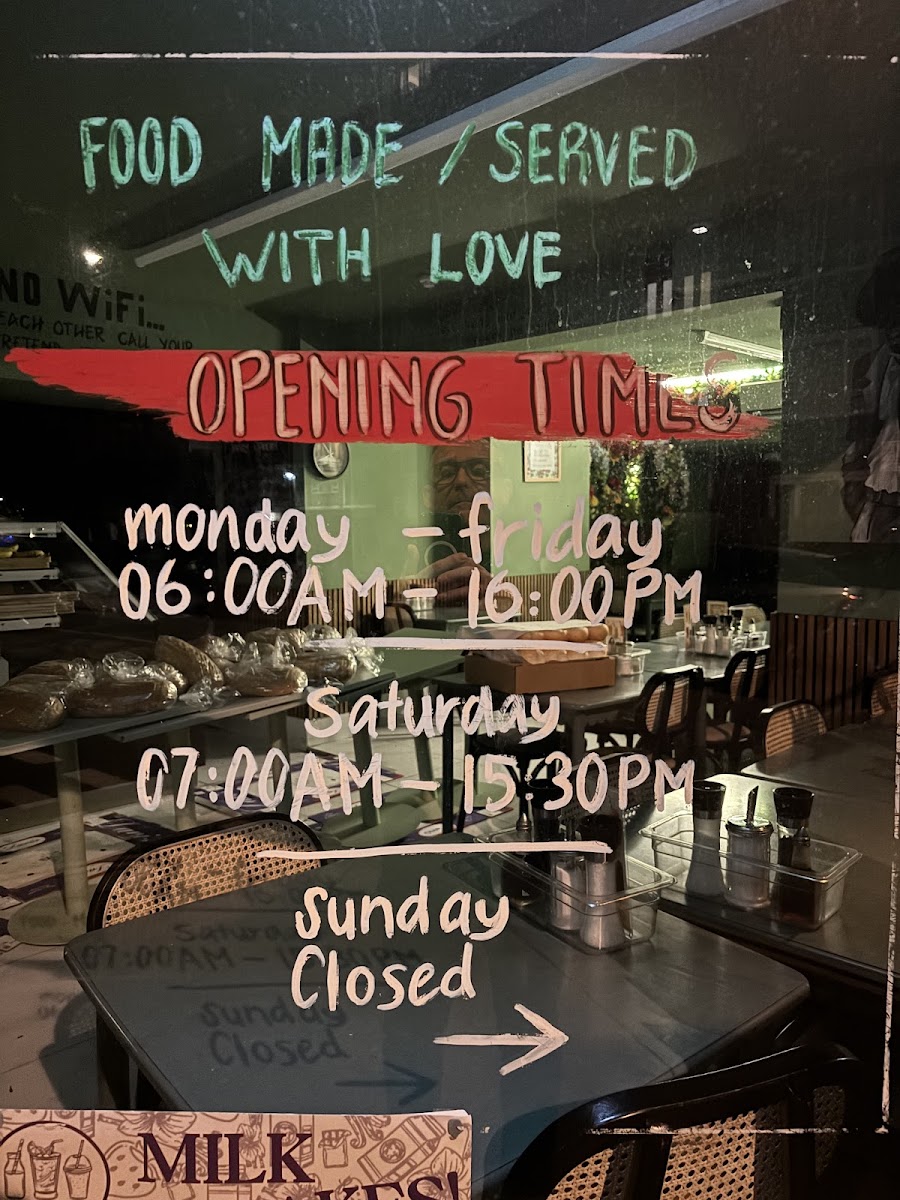 FOOD MADE / SERVED
WITH LOVE
NO WiFi...
EACH OTHER CALL YOUR
PRETEND
OPENING TIMES
monday - friday
06:00AM - 16:00PM
Saturday
07:00AM - 15:30PM
Sunday
Closed
→
MILK